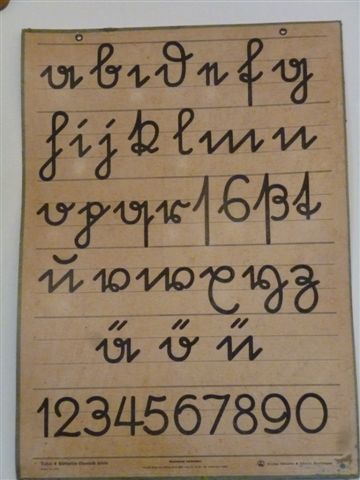 a b c d e f g
h i j k l m n
o p q r ſ s ß t
u v w x y z
ä ö ü
1234567890